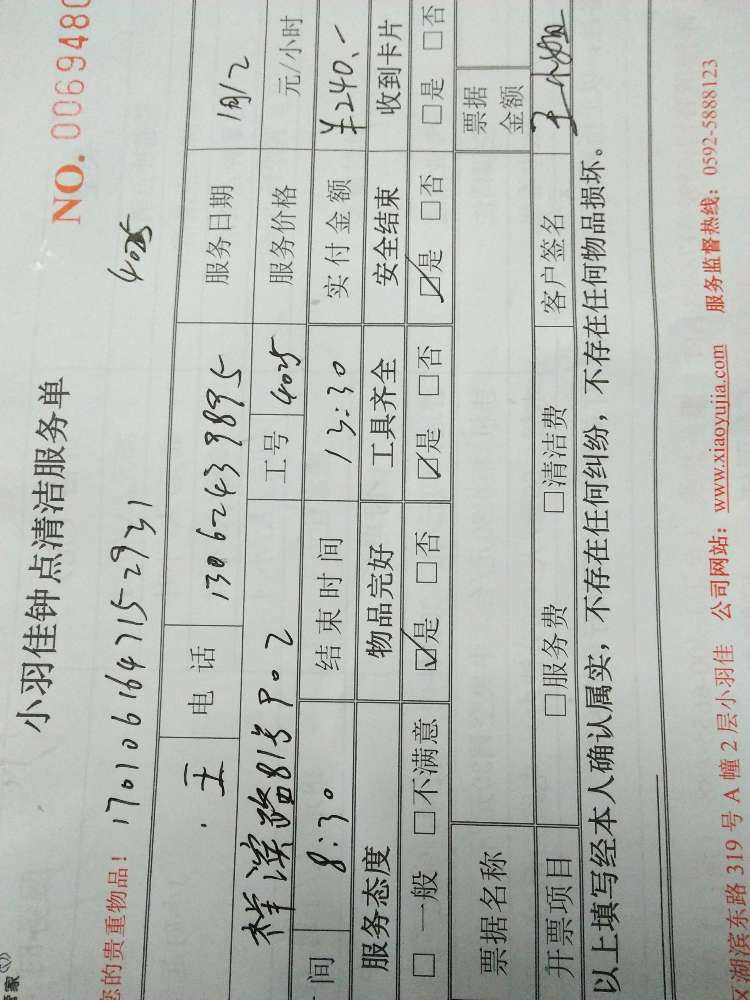 小羽佳钟点清洁服务单
NO. 0069480
您的贵重物品！ 1701061647152931 4025
王 电 话 13062439895 服务日期
祥滨路81号902 工号 4025 服务价格 元/小时
间 8:30 结束时间 13:30 实付金额 ¥240.-
服务态度 物品完好 工具齐全 安全结束 收到卡片
□ 一般 □不满意 ☑是 □否 ☑是 □否 ☑是 □否 □是 □否
票据名称 票据金额
开票项目 □服务费 □清洁费 客户签名
以上填写经本人确认属实，不存在任何纠纷，不存在任何物品损坏。
湖滨东路 319 号 A 幢 2 层小羽佳 公司网站：www.xiaoyujia.com 服务监督热线：0592-5888123